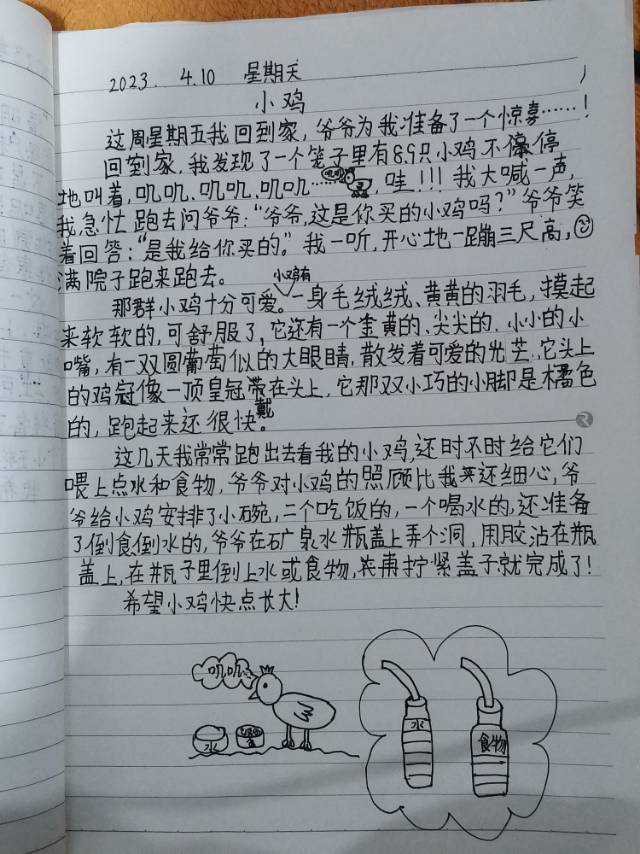 2023. 4.10 星期天
小鸡
这周星期五我回到家，爷爷为我准备了一个惊喜……！
回到家，我发现了一个笼子里有8.9只小鸡不停
地叫着，叽叽.叽叽.叽叽……叽叽，哇！！！我大喊一声，
我急忙跑去问爷爷：“爷爷，这是你买的小鸡吗？”爷爷笑
着回答：“是我给你买的。”我一听，开心地一蹦三尺高，
满院子跑来跑去。
那群小鸡十分可爱。小鸡有一身毛绒绒、黄黄的羽毛，摸起
来软软的，可舒服了，它还有一个金黄的、尖尖的、小小的小
嘴，有一双圆葡萄似的大眼睛，散发着可爱的光芒，它头上
的鸡冠像一顶皇冠戴在头上，它那双小巧的小脚是橘色
的，跑起来还很快。
这几天我常常跑出去看我的小鸡，还时不时给它们
喂上点水和食物，爷爷对小鸡的照顾比我还细心，爷
爷给小鸡安排了小碗，二个吃饭的，一个喝水的，还准备
了倒食倒水的，爷爷在矿泉水瓶盖上弄个洞，用胶沾在瓶
盖上，在瓶子里倒上水或食物，再拧紧盖子就完成了！
希望小鸡快点长大！
叽叽
水
水
食物